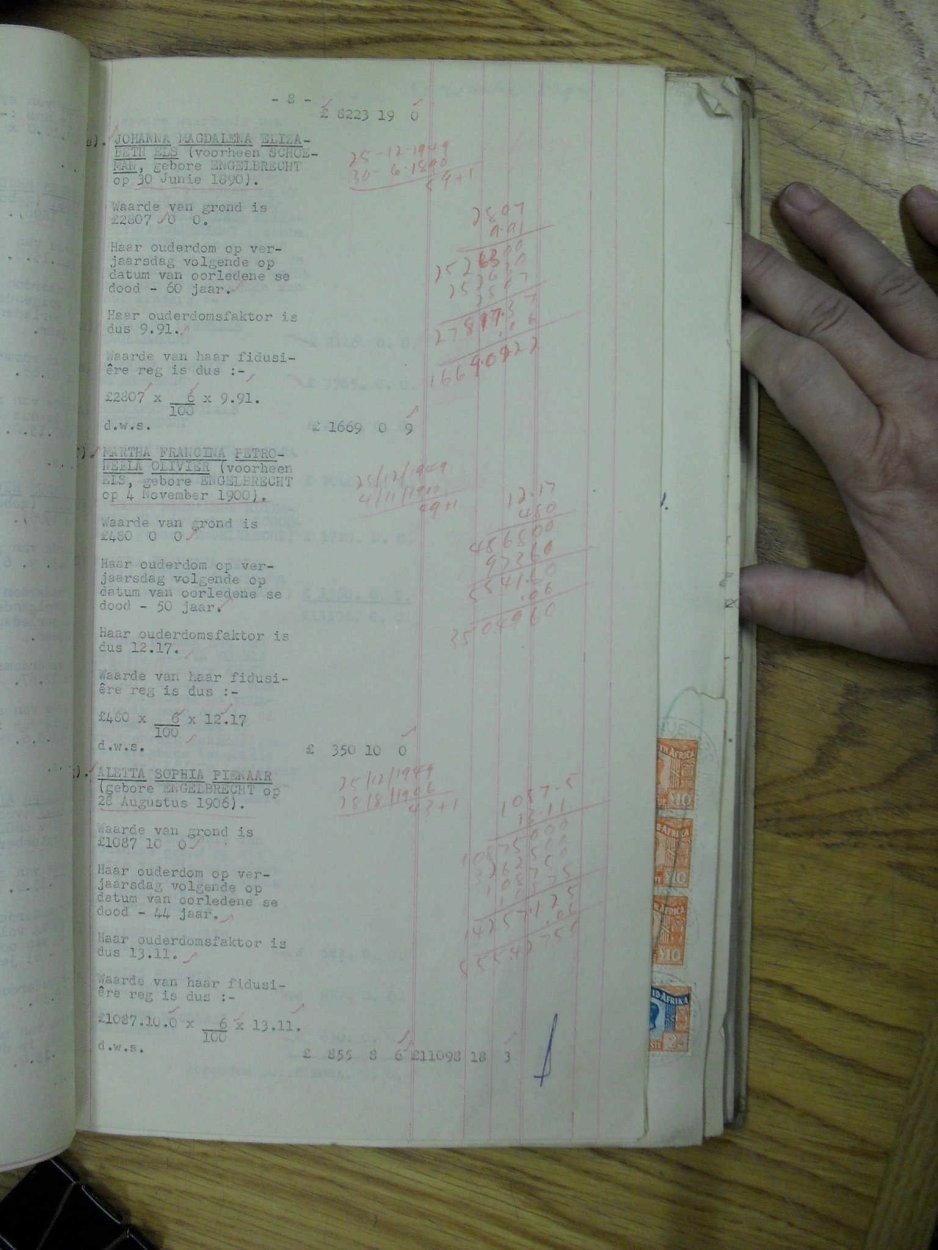 - 8 -
£ 8223 19 0
JOHANNA MAGDALENA ELIZA-
BETH ELS (voorheen SCHOE-
MAN, gebore ENGELBRECHT
op 30 Junie 1890).
25-12-1949
30-6-1890
59+1
Waarde van grond is
£2807 0 0.
2807
9.91
Haar ouderdom op ver-
jaarsdag volgende op
datum van oorledene se
dood - 60 jaar.
Haar ouderdomsfaktor is
dus 9.91.
Waarde van haar fidusi-
êre reg is dus :-
£2807 x 6 x 9.91.
100
d.w.s.
£ 1669 0 9
MARTHA FRANCINA PETRO-
NELLA OLIVIER (voorheen
ELS, gebore ENGELBRECHT
op 4 November 1900).
25/12/1949
4/11/1900
49+1
12.17
480
486800
97360
584160
.06
3504960
Waarde van grond is
£480 0 0
Haar ouderdom op ver-
jaarsdag volgende op
datum van oorledene se
dood - 50 jaar.
Haar ouderdomsfaktor is
dus 12.17.
Waarde van haar fidusi-
êre reg is dus :-
£480 x 6 x 12.17
100
d.w.s.
£ 350 10 0
ALETTA SOPHIA PIENAAR
(gebore ENGELBRECHT op
28 Augustus 1906).
25/12/1949
28/8/1906
43+1
Waarde van grond is
£1087 10 0
Haar ouderdom op ver-
jaarsdag volgende op
datum van oorledene se
dood - 44 jaar.
Haar ouderdomsfaktor is
dus 13.11.
Waarde van haar fidusi-
êre reg is dus :-
£1087.10.0 x 6 x 13.11.
100
d.w.s.
£ 855 8 6 £11098 18 3
AFRICA
£10
AFRIKA
£10
AFRICA
£10
AFRIKA